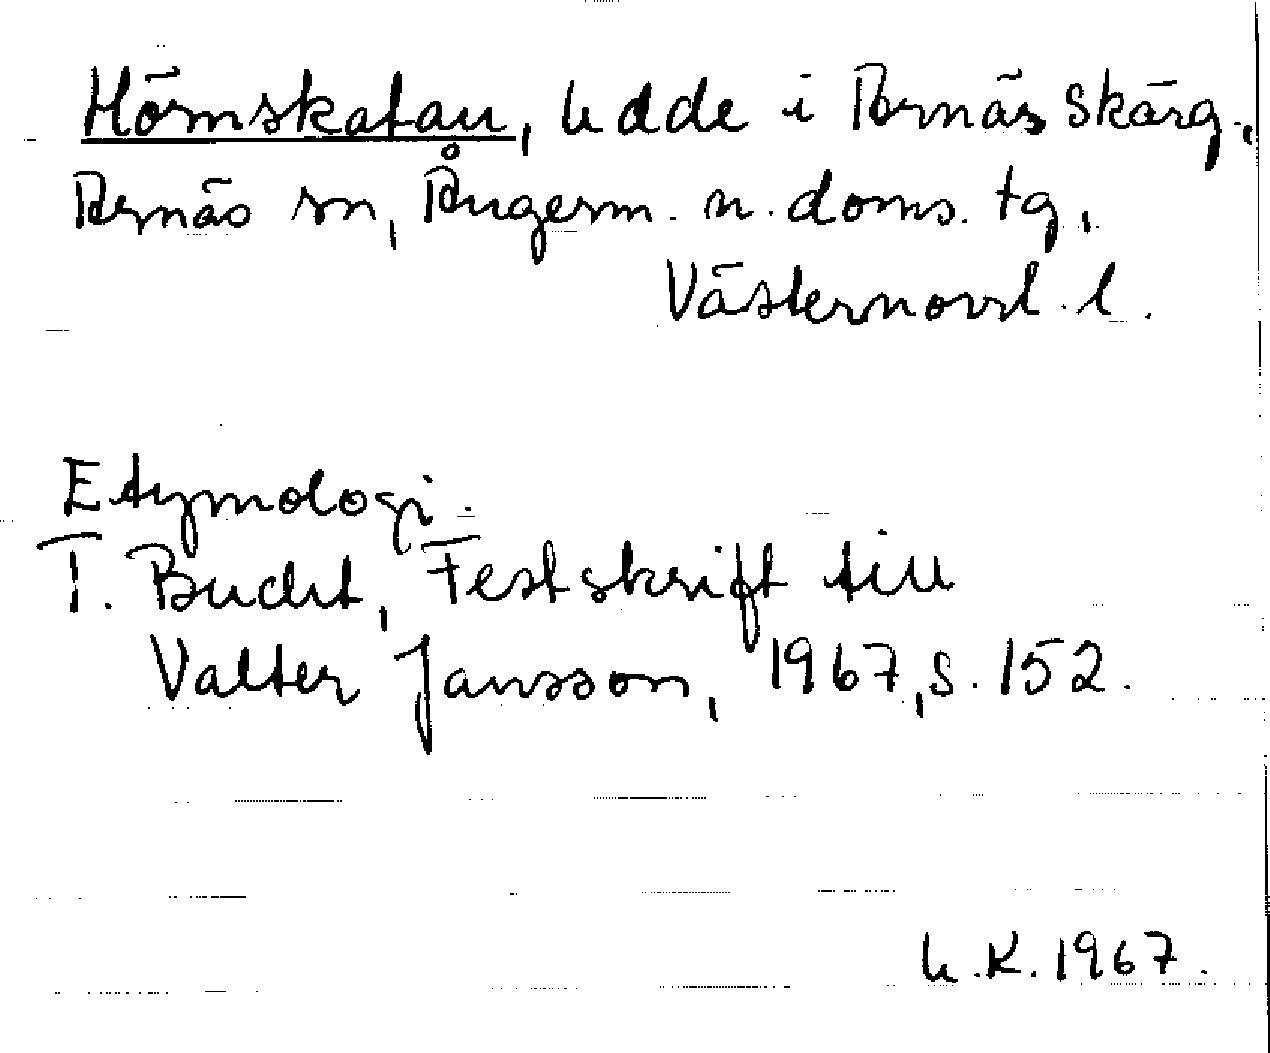 Hörnskatan, udde i Arnäs skärg.,
Arnäs sn, Ångerm. n. doms. tg,
Västernorrl. l.
Etymologi.
T. Bucht, Festskrift till
Valter Jansson, 1967, s. 152.
U.K. 1967.